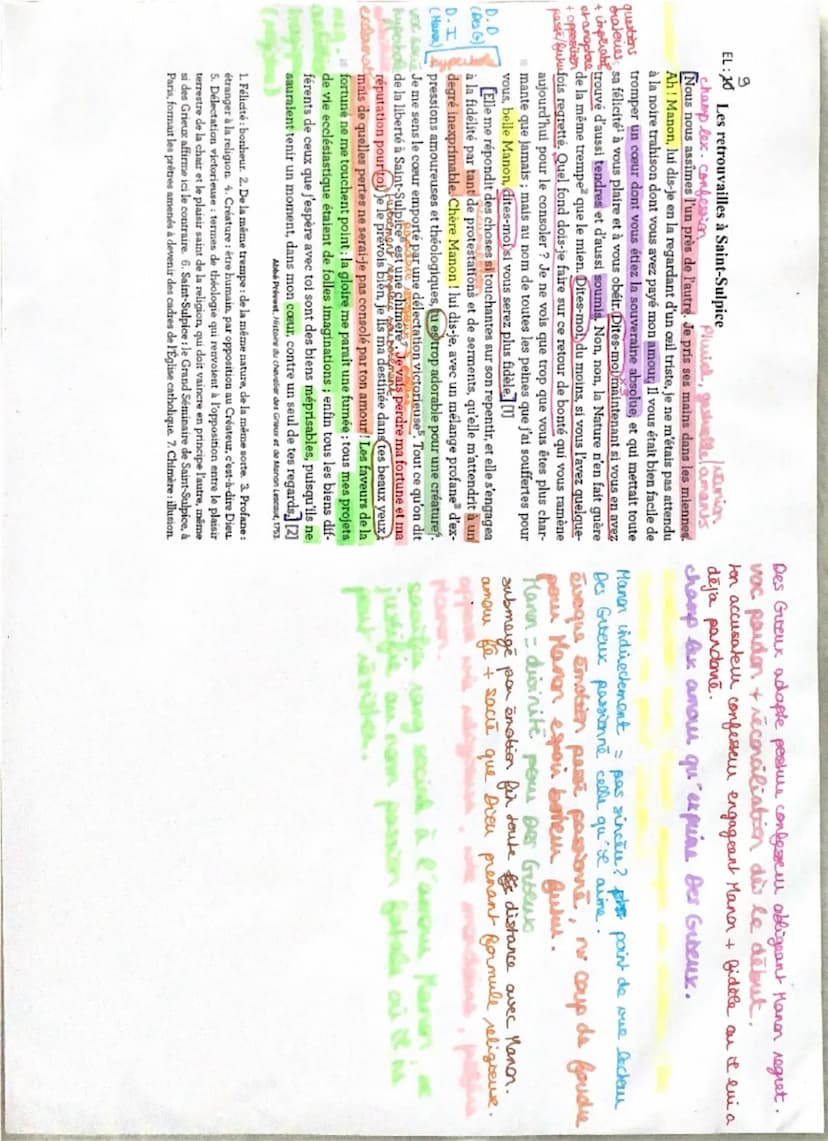 EL : 9
Les retrouvailles à Saint-Sulpice
champ lex. confession
Pluriel, gestuelle/réunion amants
[Nous nous assîmes l'un près de l'autre. Je pris ses mains dans les miennes.
Ah ! Manon, lui dis-je en la regardant d'un œil triste, je ne m'étais pas attendu
à la noire trahison dont vous avez payé mon amour. Il vous était bien facile de
tromper un cœur dont vous étiez la souveraine absolue, et qui mettait toute
sa félicité¹ à vous plaire et à vous obéir. Dites-moi maintenant si vous en avez
x3
trouvé d'aussi tendres et d'aussi soumis. Non, non, la Nature n'en fait guère
de la même trempe² que le mien. Dites-moi, du moins, si vous l'avez quelque-
fois regretté. Quel fond dois-je faire sur ce retour de bonté qui vous ramène
aujourd'hui pour le consoler ? Je ne vois que trop que vous êtes plus char-
mante que jamais ; mais au nom de toutes les peines que j'ai souffertes pour
vous, belle Manon, dites-moi si vous serez plus fidèle.] [1]
questions
oratoires
+ impératif
et anaphore
+ opposition
passé/futur
D.D
(Des G)
D.I
(Manon)
[Elle me répondit des choses si touchantes sur son repentir, et elle s'engagea
à la fidélité par tant de protestations et de serments, qu'elle m'attendrit à un
degré inexprimable. Chère Manon ! lui dis-je, avec un mélange profane³ d'ex-
pressions amoureuses et théologiques, tu es trop adorable pour une créature⁴.
Je me sens le cœur emporté par une délectation victorieuse⁵. Tout ce qu'on dit
de la liberté à Saint-Sulpice⁶ est une chimère⁷. Je vais perdre ma fortune et ma
réputation pour toi, je le prévois bien, je lis ma destinée dans tes beaux yeux ;
mais de quelles pertes ne serai-je pas consolé par ton amour ! Les faveurs de la
fortune ne me touchent point ; la gloire me paraît une fumée ; tous mes projets
de vie ecclésiastique étaient de folles imaginations ; enfin tous les biens dif-
férents de ceux que j'espère avec toi sont des biens méprisables, puisqu'ils ne
sauraient tenir un moment, dans mon cœur, contre un seul de tes regards.] [2]
Abbé Prévost, Histoire du chevalier des Grieux et de Manon Lescaut, 1753.
1. Félicité : bonheur. 2. De la même trempe : de la même nature, de la même sorte. 3. Profane :
étranger à la religion. 4. Créature : être humain, par opposition au Créateur, c'est-à-dire Dieu.
5. Délectation victorieuse : termes de théologie qui renvoient à l'opposition entre le plaisir
terrestre de la chair et le plaisir saint de la religion, qui doit vaincre en principe l'autre, même
si des Grieux affirme ici le contraire. 6. Saint-Sulpice : le Grand Séminaire de Saint-Sulpice, à
Paris, formait les prêtres amenés à devenir des cadres de l'Église catholique. 7. Chimère : illusion.
Des Grieux adopte posture confesseur obligeant Manon regret.
voc pardon + réconciliation dès le début.
ton accusateur confesseur engageant Manon + fidèle car il lui a
déjà pardonné.
champ lex amour qu'exprime Des Grieux.
Manon indirectement = pas sincère? point de vue lecteur
Des Grieux passionné celle qu'il aime.
évoque émotion passé passionné, coup de foudre
pour Manon espoir bonheur futur.
Manon = divinité pour Des Grieux
submergé par émotion fin toute distance avec Manon.
amour + sacré que Dieu prenant formule religieuse.
sacrifie rang social à l'amour Manon
justifie au nom passion fatale où il ne
peut résister.